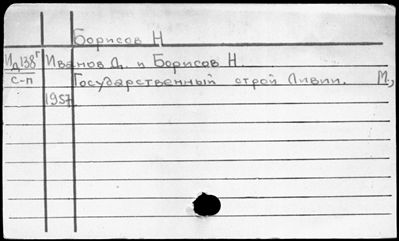 Борисов Н
Ид138г Иванов Д. и Борисов Н.
с-п Государственный строй Ливии. М.,
1957